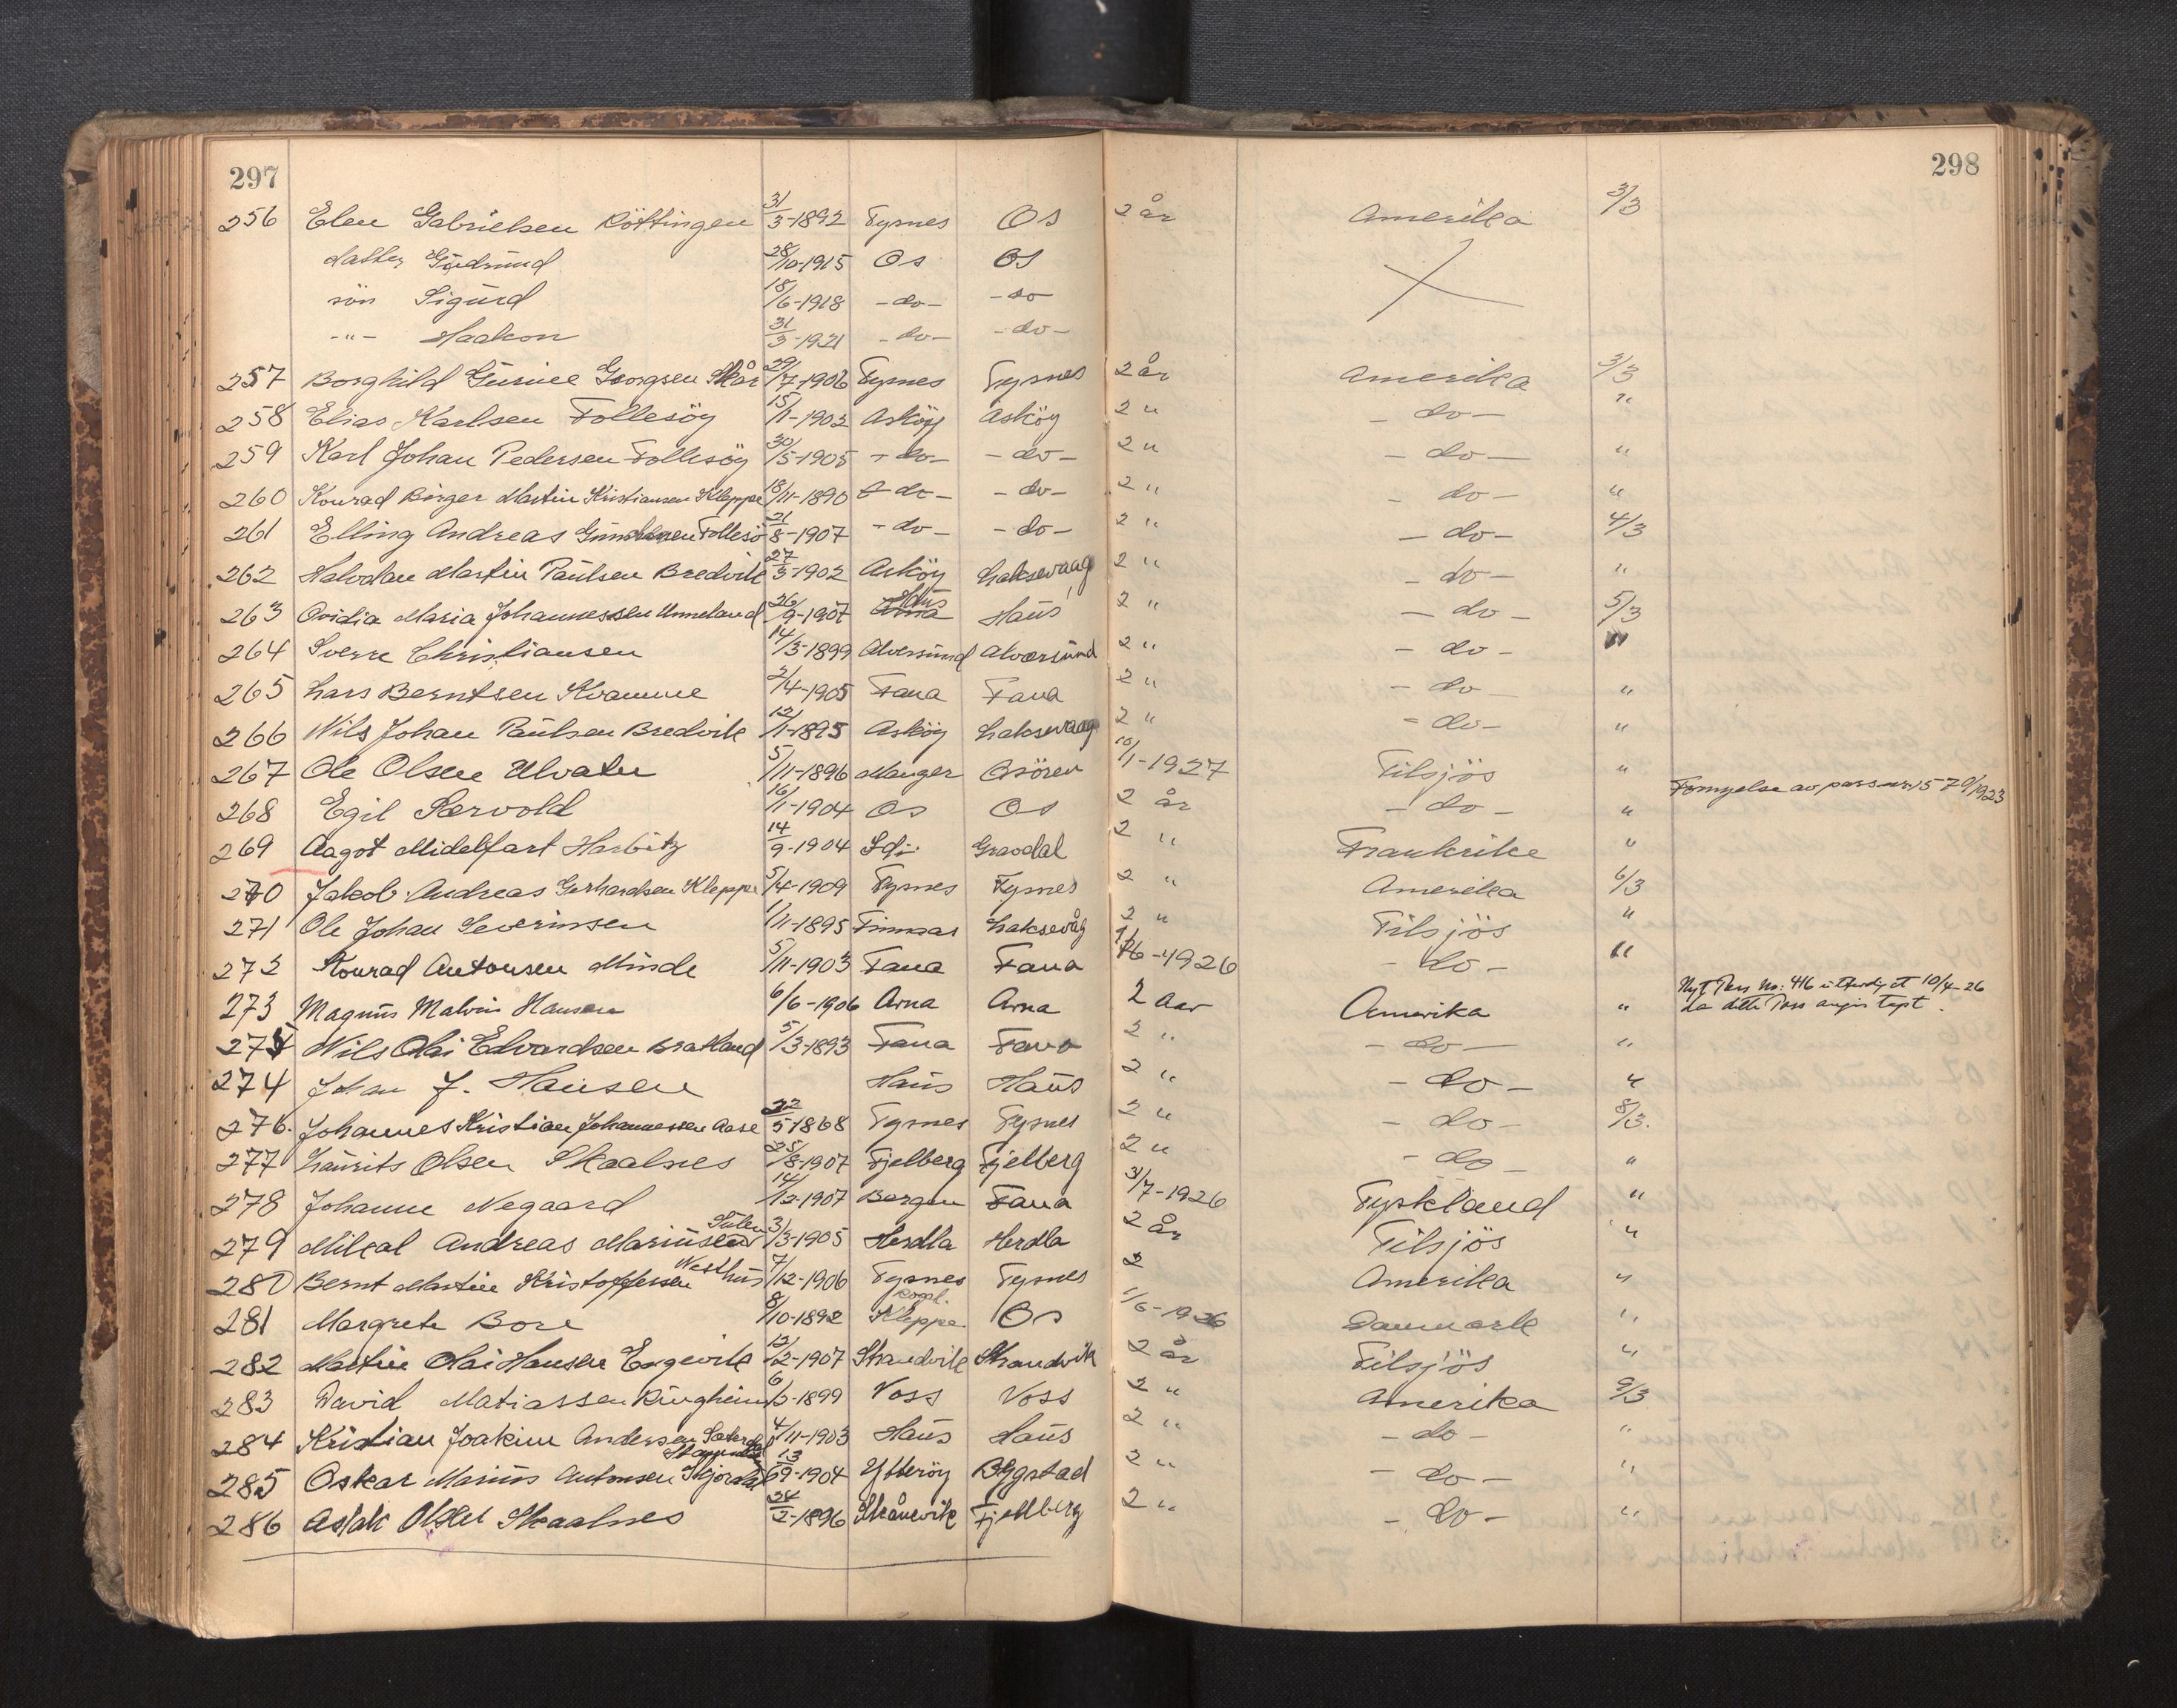 297 298
256 Elen Gabrielsen Röttingen 31/3-1892 Tysnes Os 2 år Amerika 3/3
datter Gudrund 28/10-1915 Os Os
sön Sigurd 18/6-1918 -do- -do
-"- Haakon 31/3-1921 -do- -do-
257 Borghild Gurine Georgsen Skår 29/7-1906 Tysnes Tysnes 2 år Amerika 3/3
258 Elias Karlsen Follesöy 15/1-1902 Asköy Asköy 2 " -do- "
259 Karl Johan Pedersen Follesöy 30/5-1905 -do- -do- 2 " -do- "
260 Konrad Birger Martin Kristiansen Kleppe 18/11-1890 -do- -do- 2 " -do- "
261 Elling Andreas Follesö 21/8-1907 -do- -do- 2 " -do- 4/3
262 Halvdan Martin Paulsen Bredvik 27/3-1902 Asköy Laksevaag 2 " -do- "
263 Ovidia Maria Johannessen Unneland 26/9-1907 Arna Haus Haus 2 " -do- 5/3
264 Sverre Christiansen 14/3-1899 Alversund Alversund 2 " -do- "
265 Lars Berntsen Kvamme 2/4-1905 Fana Fana 2 " -do- "
266 Nils Johan Paulsen Bredvik 12/1-1895 Asköy Laksevaag 2 " -do- "
267 Ole Olsen Ulvatn 5/11-1896 Manger Osören 10/1-1927 Tilsjös " Fornyelse av pass nr 1579/1923
268 Egil Sørvold 16/1-1904 Os Os 2 år -do- "
269 Aagot Midelfart Harbitz 14/9-1904 Gravdal 2 " Frankrike "
270 Jakob Andreas Gerhardsen Kleppe 5/4-1909 Tysnes Tysnes 2 " Amerika 6/3
271 Ole Johan Severinsen 1/11-1895 Finnaas Laksevåg 2 " Tilsjös "
272 Konrad Antonsen Minde 5/11-1903 Fana Fana -1926 -do- "
273 Magnus Malvin Hansen 6/6-1906 Arna Arna 2 aar Amerika " Nyt Pass No: 416 utferdiget 10/4-26
da dette Pass angis tapt.
275 Nils Olai Edvardsen Bratland 5/3-1893 Fana Fana 2 " -do- "
274 Johan J. Hansen Haus Haus 2 " -do- "
276. Johannes Kristian Johannessen Aase 22/5-1868 Tysnes Tysnes 2 " -do- 8/3.
277 Laurits Olsen Skaalnes 25/8-1907 Fjelberg Fjelberg 2 " -do- "
278 Johanne Negaard 14/12-1907 Bergen Fana 3/7-1926 Tyskland "
279 Mikal Andreas Mariussen Sulen 3/3-1905 Herdla Herdla 2 år Tilsjös "
280 Bernt Martin Kristoffersen Westhus 7/12-1906 Tysnes Tysnes 2 Amerika "
281 Margrete Bore 8/10-1892 Kleppe Rogl. Os 1/6-1926 Danmark "
282 Martin Olai Hansen Engevik 12/2-1907 Strandvik Strandvik 2 år Tilsjös "
283 David Matiassen Ringheim 6/5-1899 Voss Voss 2 " Amerika 9/3
284 Kristian Joakim Andersen 4/11-1903 Haus Haus 2 " -do- "
285 Oskar Marius Antonsen 13/9-1904 Ytteröy Bygstad 2 " -do- "
286 Aslak Olsen Skaalnes 24/2-1896 Skånevik Fjellberg 2 " -do- "